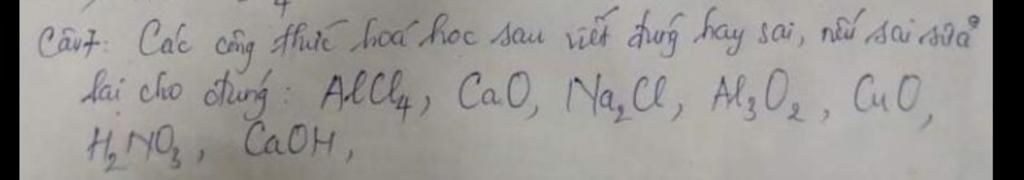 Câu7: Các công thức hoá học sau viết đúng hay sai, nếu sai sửa
lại cho đúng: AlCl₄, CaO, Na₂Cl, Al₃O₂, CuO,
H₂NO₃, CaOH,